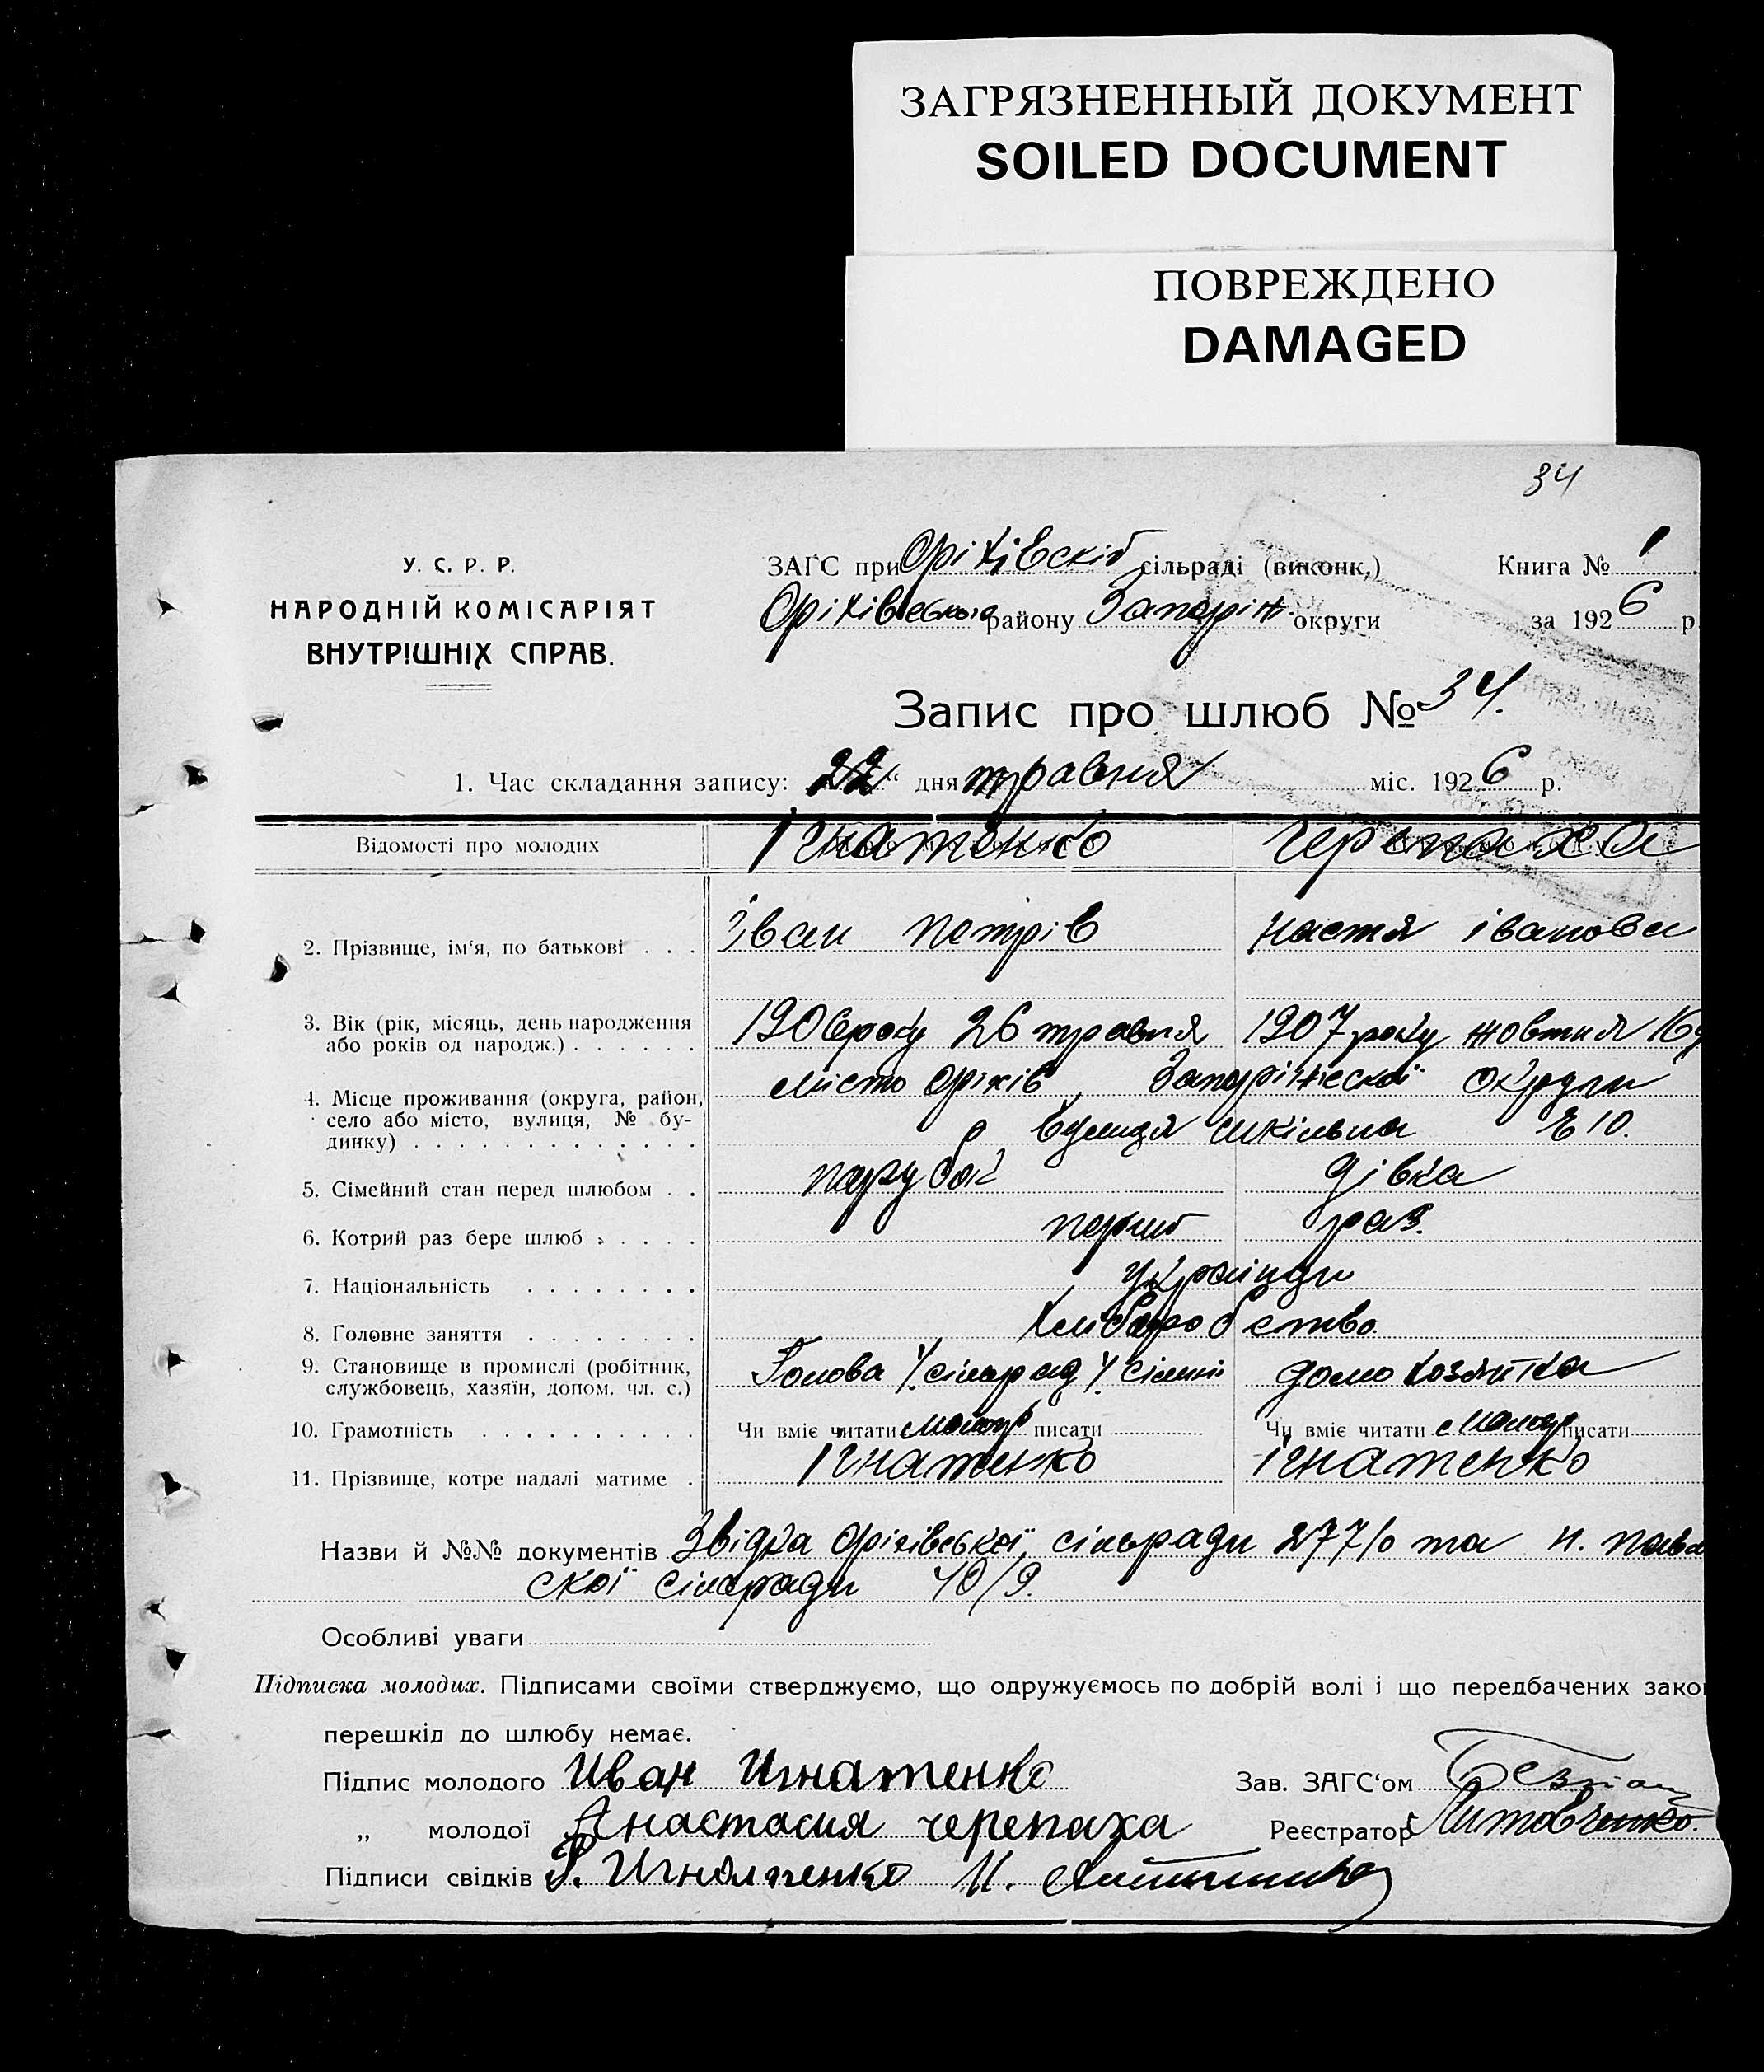 ЗАГРЯЗНЕННЫЙ ДОКУМЕНТ
SOILED DOCUMENT
ПОВРЕЖДЕНО
DAMAGED
34
У. С. Р. Р.
НАРОДНІЙ КОМІСАРІЯТ
ВНУТРІШНІХ СПРАВ.
ЗАГС при Оріхівскій сільраді (виконк,) Книга № 1
Оріхівського району Запоріж. округи за 1926 р
Запис про шлюб № 34.
1. Час складання запису: 22 “ дня травня міс. 1926 р.
Відомості про молодих Ігнатенко Черепаха
2. Прізвище, ім‘я, по батькові . . . Іван Петрів Настя Іванова
3. Вік (рік, місяць, день народження 1906 року 26 травня 1907 року жовтня 16
або років од народж.) . . . . . .
4. Місце проживання (округа, район, місто Оріхів, Запоріжеской округи
село або місто, вулиця, № бу- вулиця шкільна № 10.
динку) . . . . . . . . . . . . .
5. Сімейний стан перед шлюбом . . парубок дівка
6. Котрий раз бере шлюб . . . . . перший раз.
7. Національність . . . . . . . . українци
8. Головне заняття . . . . . . . . хліборобство.
9. Становище в промислі (робітник, Голова домохозяйка
службовець, хазяїн, допом. чл. с.)
10. Грамотність . . . . . . . . . . Чи вміє читати писати Чи вміє читати писати
11. Прізвище, котре надалі матиме . Ігнатенко Ігнатенко
Назви й №№ документів Звідка Оріхівської сільради 277/0 та Н. Павло
скої сільради 40/9.
Особливі уваги
Підписка молодих. Підписами своїми стверджуємо, що одружуємось по добрій волі і що передбачених зако
перешкід до шлюбу немає.
Підпис молодого Иван Игнатенко Зав. ЗАГС‘ом
„ молодої Анастасия черепаха Реєстратор Литовченко.
Підписи свідків Игнатенко